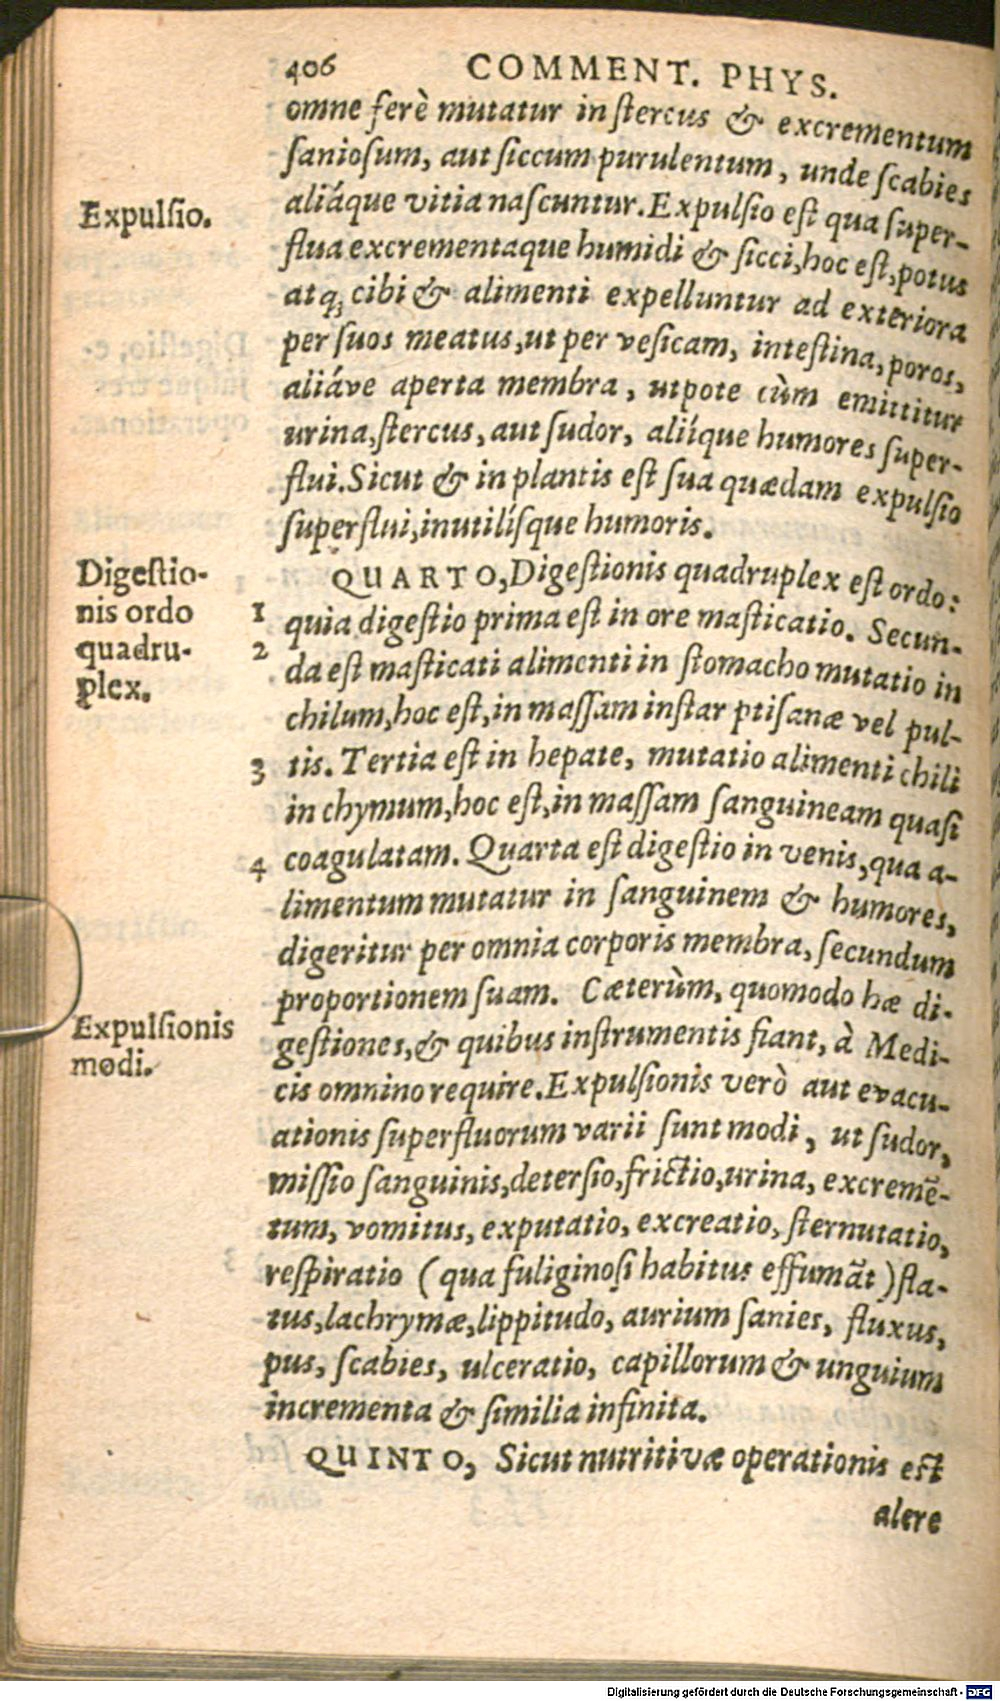 406 COMMENT. PHYS.
omne ferè mutatur in ſtercus & excrementum
ſanioſum, aut ſiccum purulentum, unde ſcabies
aliáque vitia naſcuntur. Expulſio eſt qua ſuper-
Expulſio.
flua excrementaque humidi & ſicci, hoc eſt, potus
atq; cibi & alimenti expelluntur ad exteriora
per ſuos meatus, ut per veſicam, inteſtina, poros,
aliáve aperta membra, utpote cùm emittitur
urina, ſtercus, aut ſudor, aliíque humores ſuper-
flui. Sicut & in plantis eſt ſua quædam expulſio
superflui, inutilíſque humoris.
Digeſtio-
nis ordo
quadru-
plex.
QUARTO, Digeſtionis quadruplex eſt ordo:
1 quia digeſtio prima eſt in ore maſticatio. Secun-
2 da eſt maſticati alimenti in ſtomacho mutatio in
chilum, hoc eſt, in maſſam inſtar ptiſanæ vel pul-
3 tis. Tertia eſt in hepate, mutatio alimenti chili
in chymum, hoc eſt, in maſſam ſanguineam quaſi
4 coagulatam. Quarta eſt digeſtio in venis, qua a-
limentum mutatur in ſanguinem & humores,
digeritur per omnia corporis membra, ſecundum
proportionem ſuam. Cæterùm, quomodo hæ di-
Expulſionis
modi.
geſtiones, & quibus inſtrumentis fiant, à Medi-
cis omnino require. Expulſionis verò aut evacu-
ationis ſuperfluorum varii ſunt modi, ut ſudor,
miſſio ſanguinis, deterſio, frictio, urina, excremẽ-
tum, vomitus, exputatio, excreatio, ſternutatio,
reſpiratio (qua fuliginoſi habitus effumãt) fla-
tus, lachrymæ, lippitudo, aurium ſanies, fluxus,
pus, ſcabies, ulceratio, capillorum & unguium
incrementa & ſimilia infinita.
QUINTO, Sicut nutritivæ operationis eſt
alere
Digitalisierung gefördert durch die Deutsche Forschungsgemeinschaft - DFG